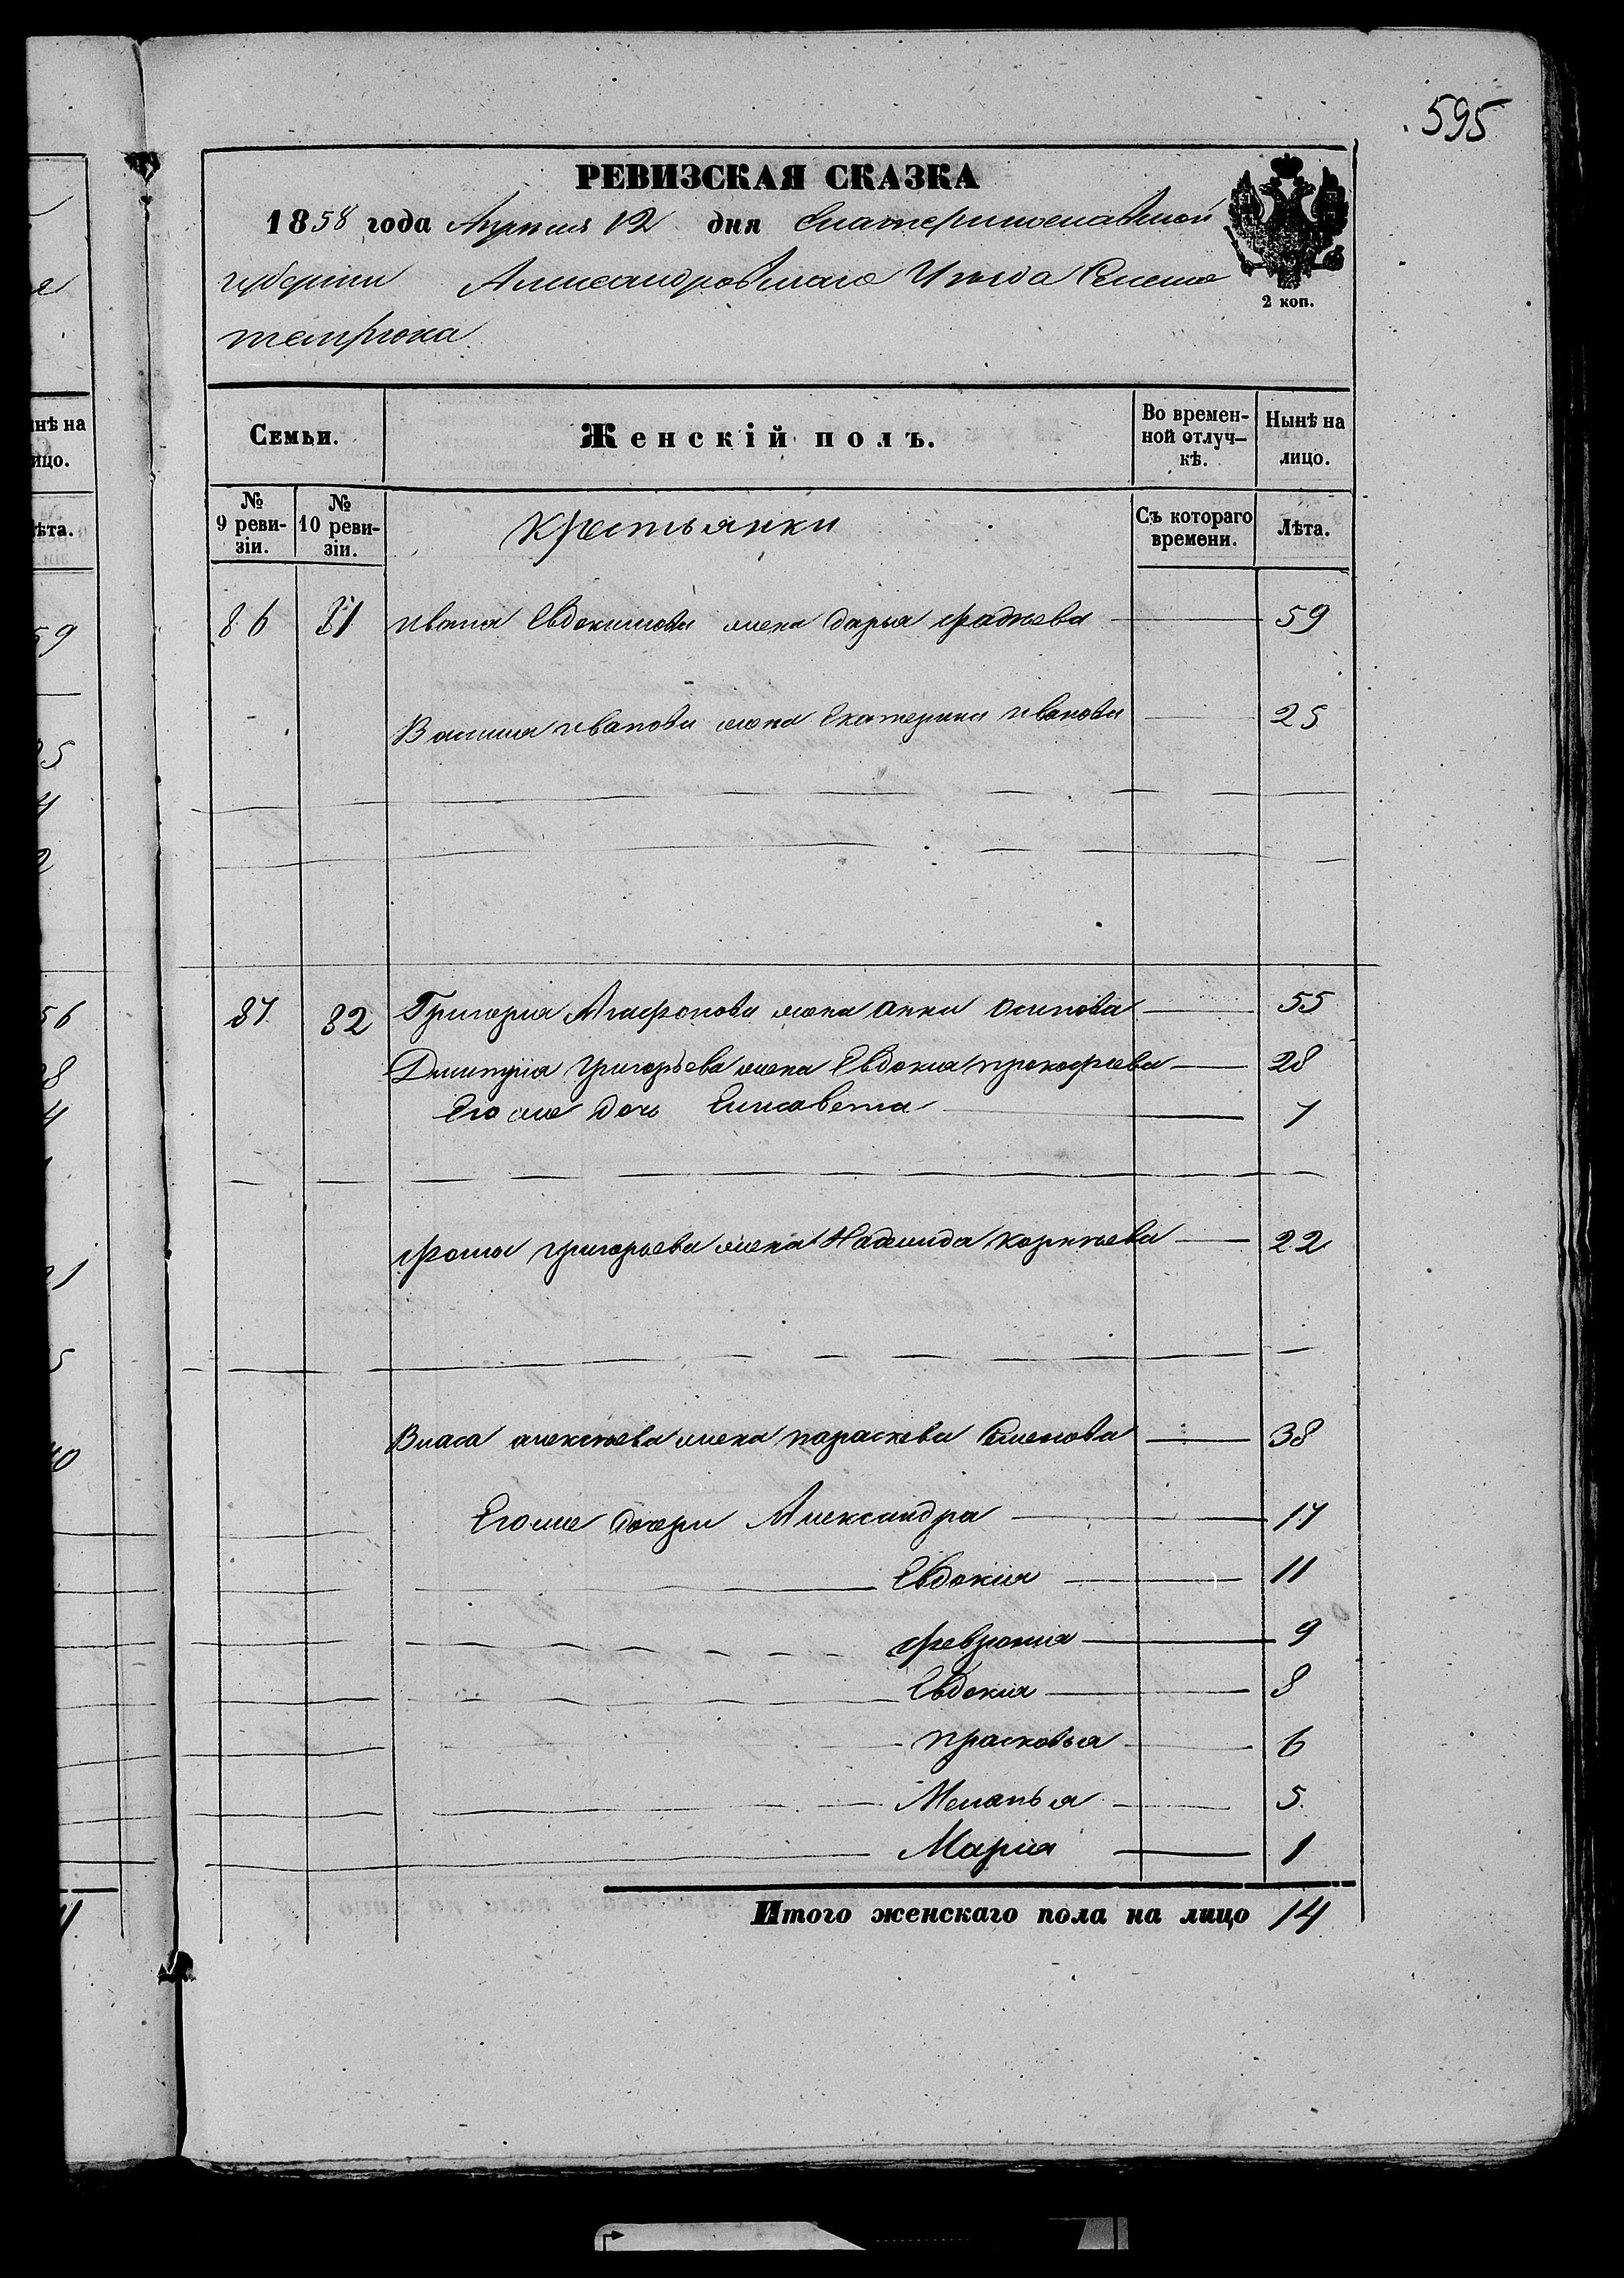 595
РЕВИЗСКАЯ СКАЗКА
1858 года Апреля 12 дня Екатеринославской
губернии Александровскаго Уезда Селенія
темрюка
2 коп.
Семьи.
Женскій полъ.
Во времен-
ной отлуч-
кѣ.
Нынѣ на
лицо.
№
9 реви-
зіи.
№
10 реви-
зіи.
Крестьянки
Съ котораго
времени.
Лѣта.
86 81 Ивана Евдокимова жена дарья фадѣева 59
Василия иванова жена Екатерина иванова 25
87 82 Григория Агафонова жена анна осипова 55
Дмитрия григорьева жена Евдокия прокофиева 28
Его же дочь Елисавета 7
фомы григорьева жена Надежда корнѣева 22
Власа алексѣева жена параскева Семенова 38
Его же дочери Александра 17
Евдокия 11
феврония 9
Евдокия 8
прасковья 6
Меланья 5
Мария 1
Итого женскаго пола на лицо 14
нѣ на
ицо.
ѣта.
59
56
40